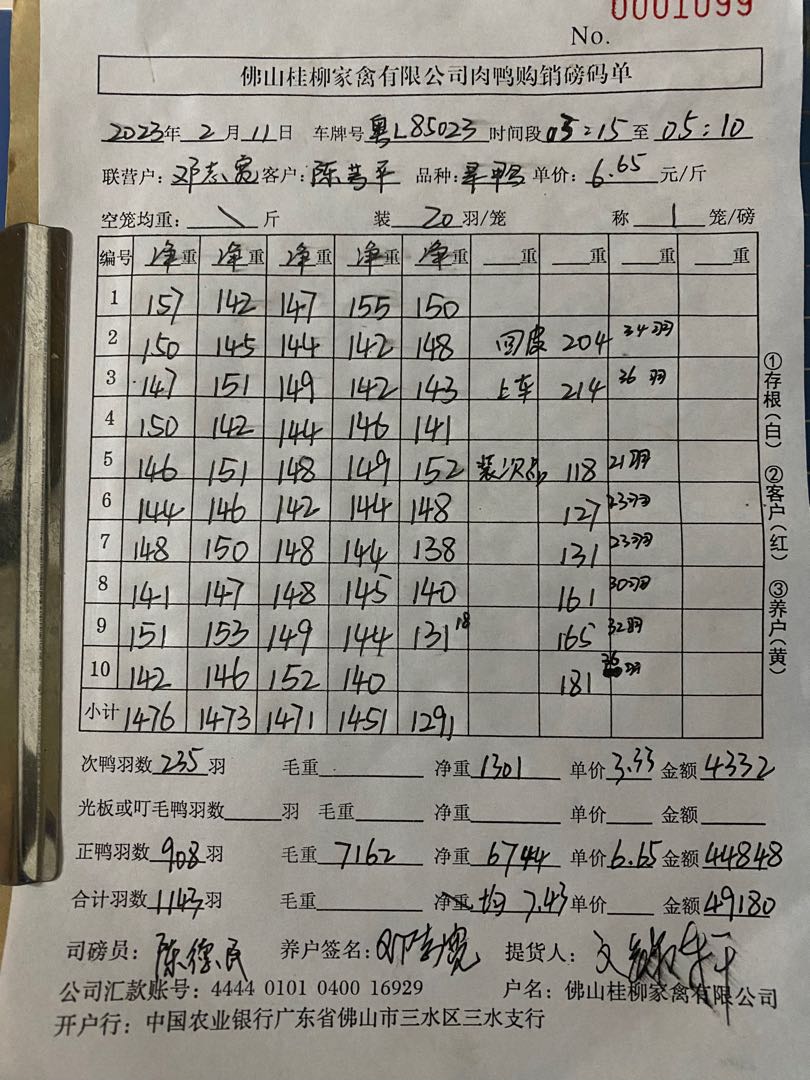 0001099
No.
佛山桂柳家禽有限公司肉鸭购销磅码单
2023年 2 月 11 日 车牌号 粤L85023 时间段 03:15 至 05:10
联营户: 邓志宽 客户: 陈 平 品种: 鸭 单价: 6.65 元/斤
空笼均重: \ 斤 装 20 羽/笼 称 1 笼/磅
编号 净重 净重 净重 净重 净重 重 重 重 重
1 157 142 147 155 150
2 150 145 144 142 148 回皮 204 34羽
3 147 151 149 142 143 上车 214 36羽
4 150 142 144 146 141
5 146 151 148 149 152 装次品 118 21羽
6 144 146 142 144 148 127 23羽
7 148 150 148 144 138 131 23羽
8 141 147 148 145 140 161 30羽
9 151 153 149 144 131 18 165 32羽
10 142 146 152 140 181 36羽
小计 1476 1473 1471 1451 1291
次鸭羽数 235 羽 毛重 净重 1301 单价 3.33 金额 4332
光板或叮毛鸭羽数 羽 毛重 净重 单价 金额
正鸭羽数 908 羽 毛重 7162 净重 6744 单价 6.65 金额 44848
合计羽数 1143 羽 毛重 净重 均 7.43 单价 金额 49180
司磅员: 陈德民 养户签名: 邓志宽 提货人:
公司汇款账号: 4444 0101 0400 16929 户名: 佛山桂柳家禽有限公司
开户行: 中国农业银行广东省佛山市三水区三水支行
①存根(白) ②客户(红) ③养户(黄)